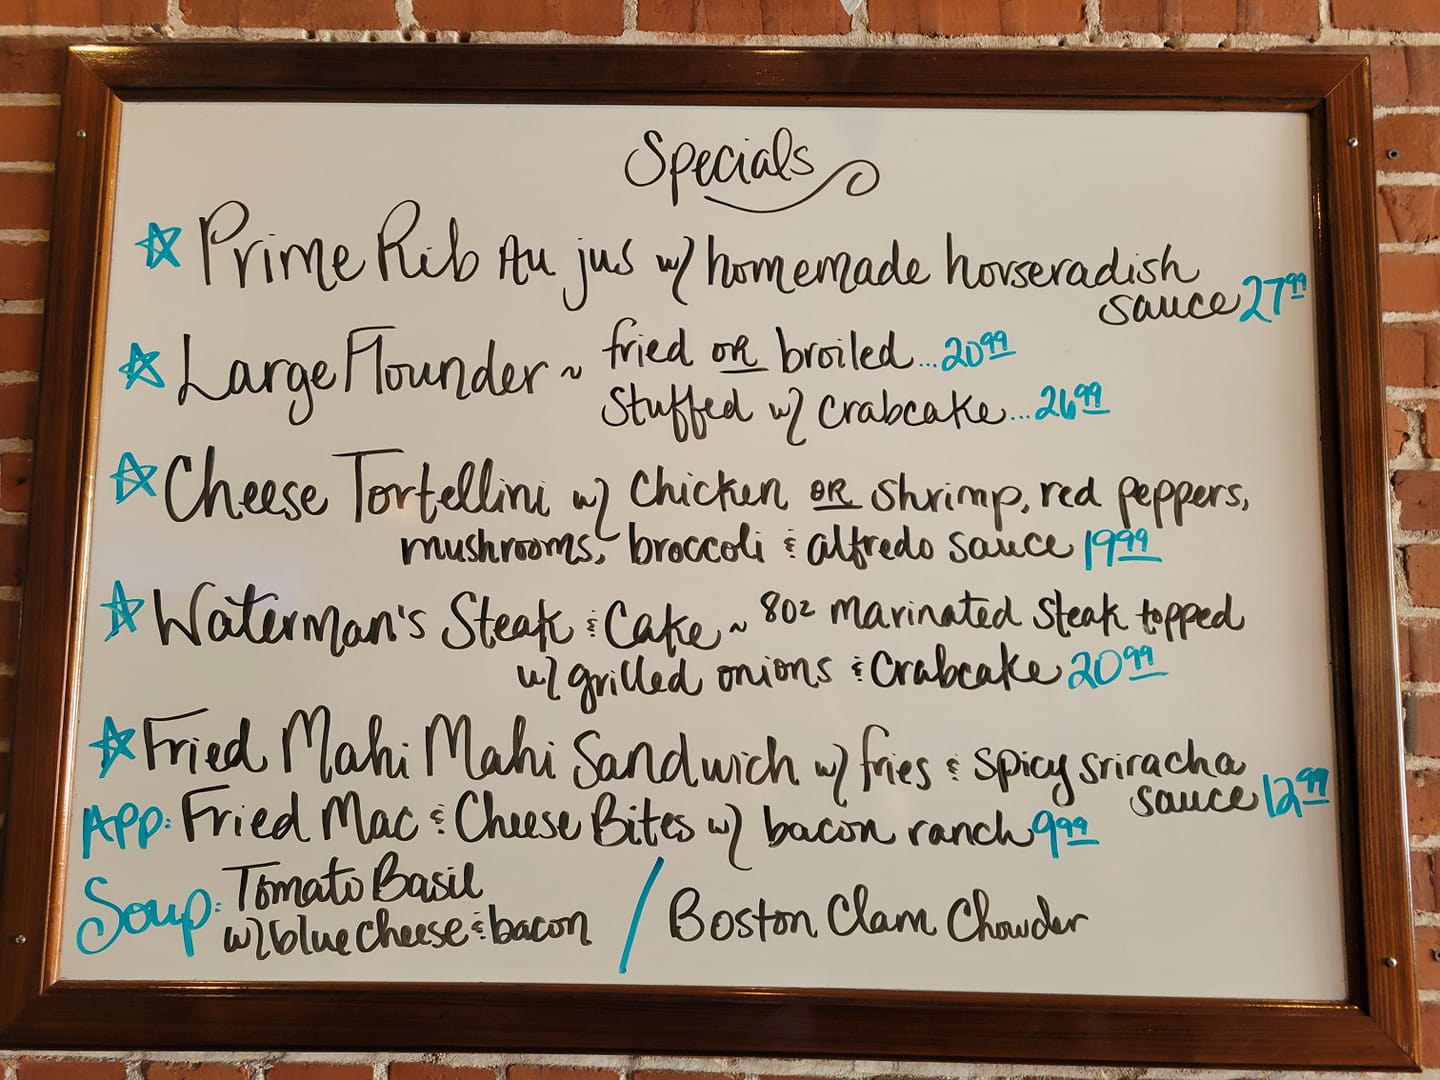 Specials
Prime Rib Au jus w/ homemade horseradish
sauce 27.99
Large Flounder ~ fried OR broiled...20.99
Stuffed w/ crabcake...26.99
Cheese Tortellini w/ chicken OR shrimp, red peppers,
mushrooms, broccoli & alfredo sauce 19.99
Waterman's Steak & Cake ~ 8oz marinated steak topped
w/ grilled onions & crabcake 20.99
Fried Mahi Mahi Sandwich w/ fries & spicy sriracha
sauce 12.99
App: Fried Mac & Cheese Bites w/ bacon ranch 9.99
Soup: Tomato Basil
w/ blue cheese & bacon / Boston Clam Chowder